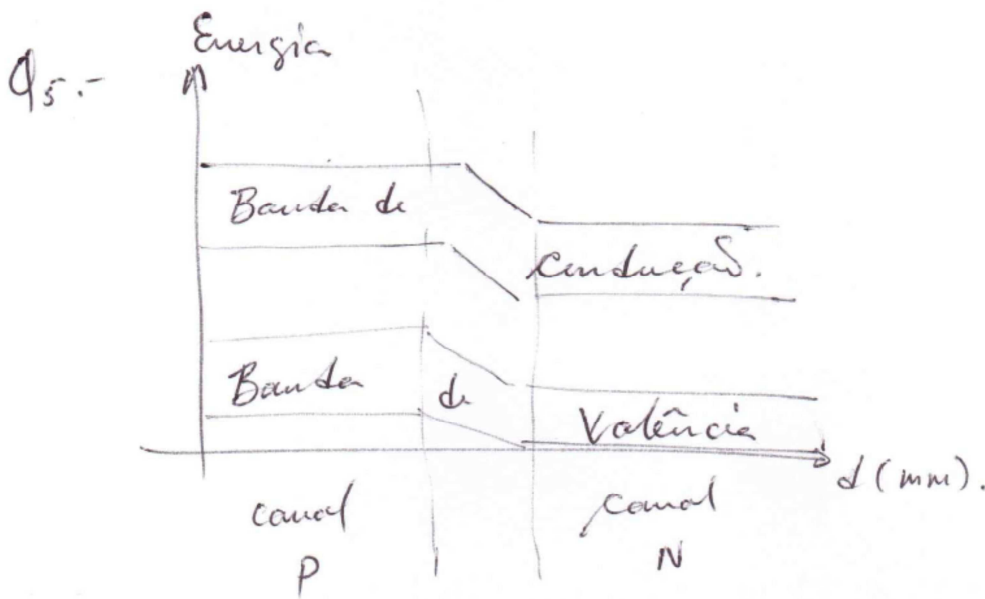 Q5.-
Energia
Banda de
condução.
Banda de Valência
d (mm).
canal canal
P N